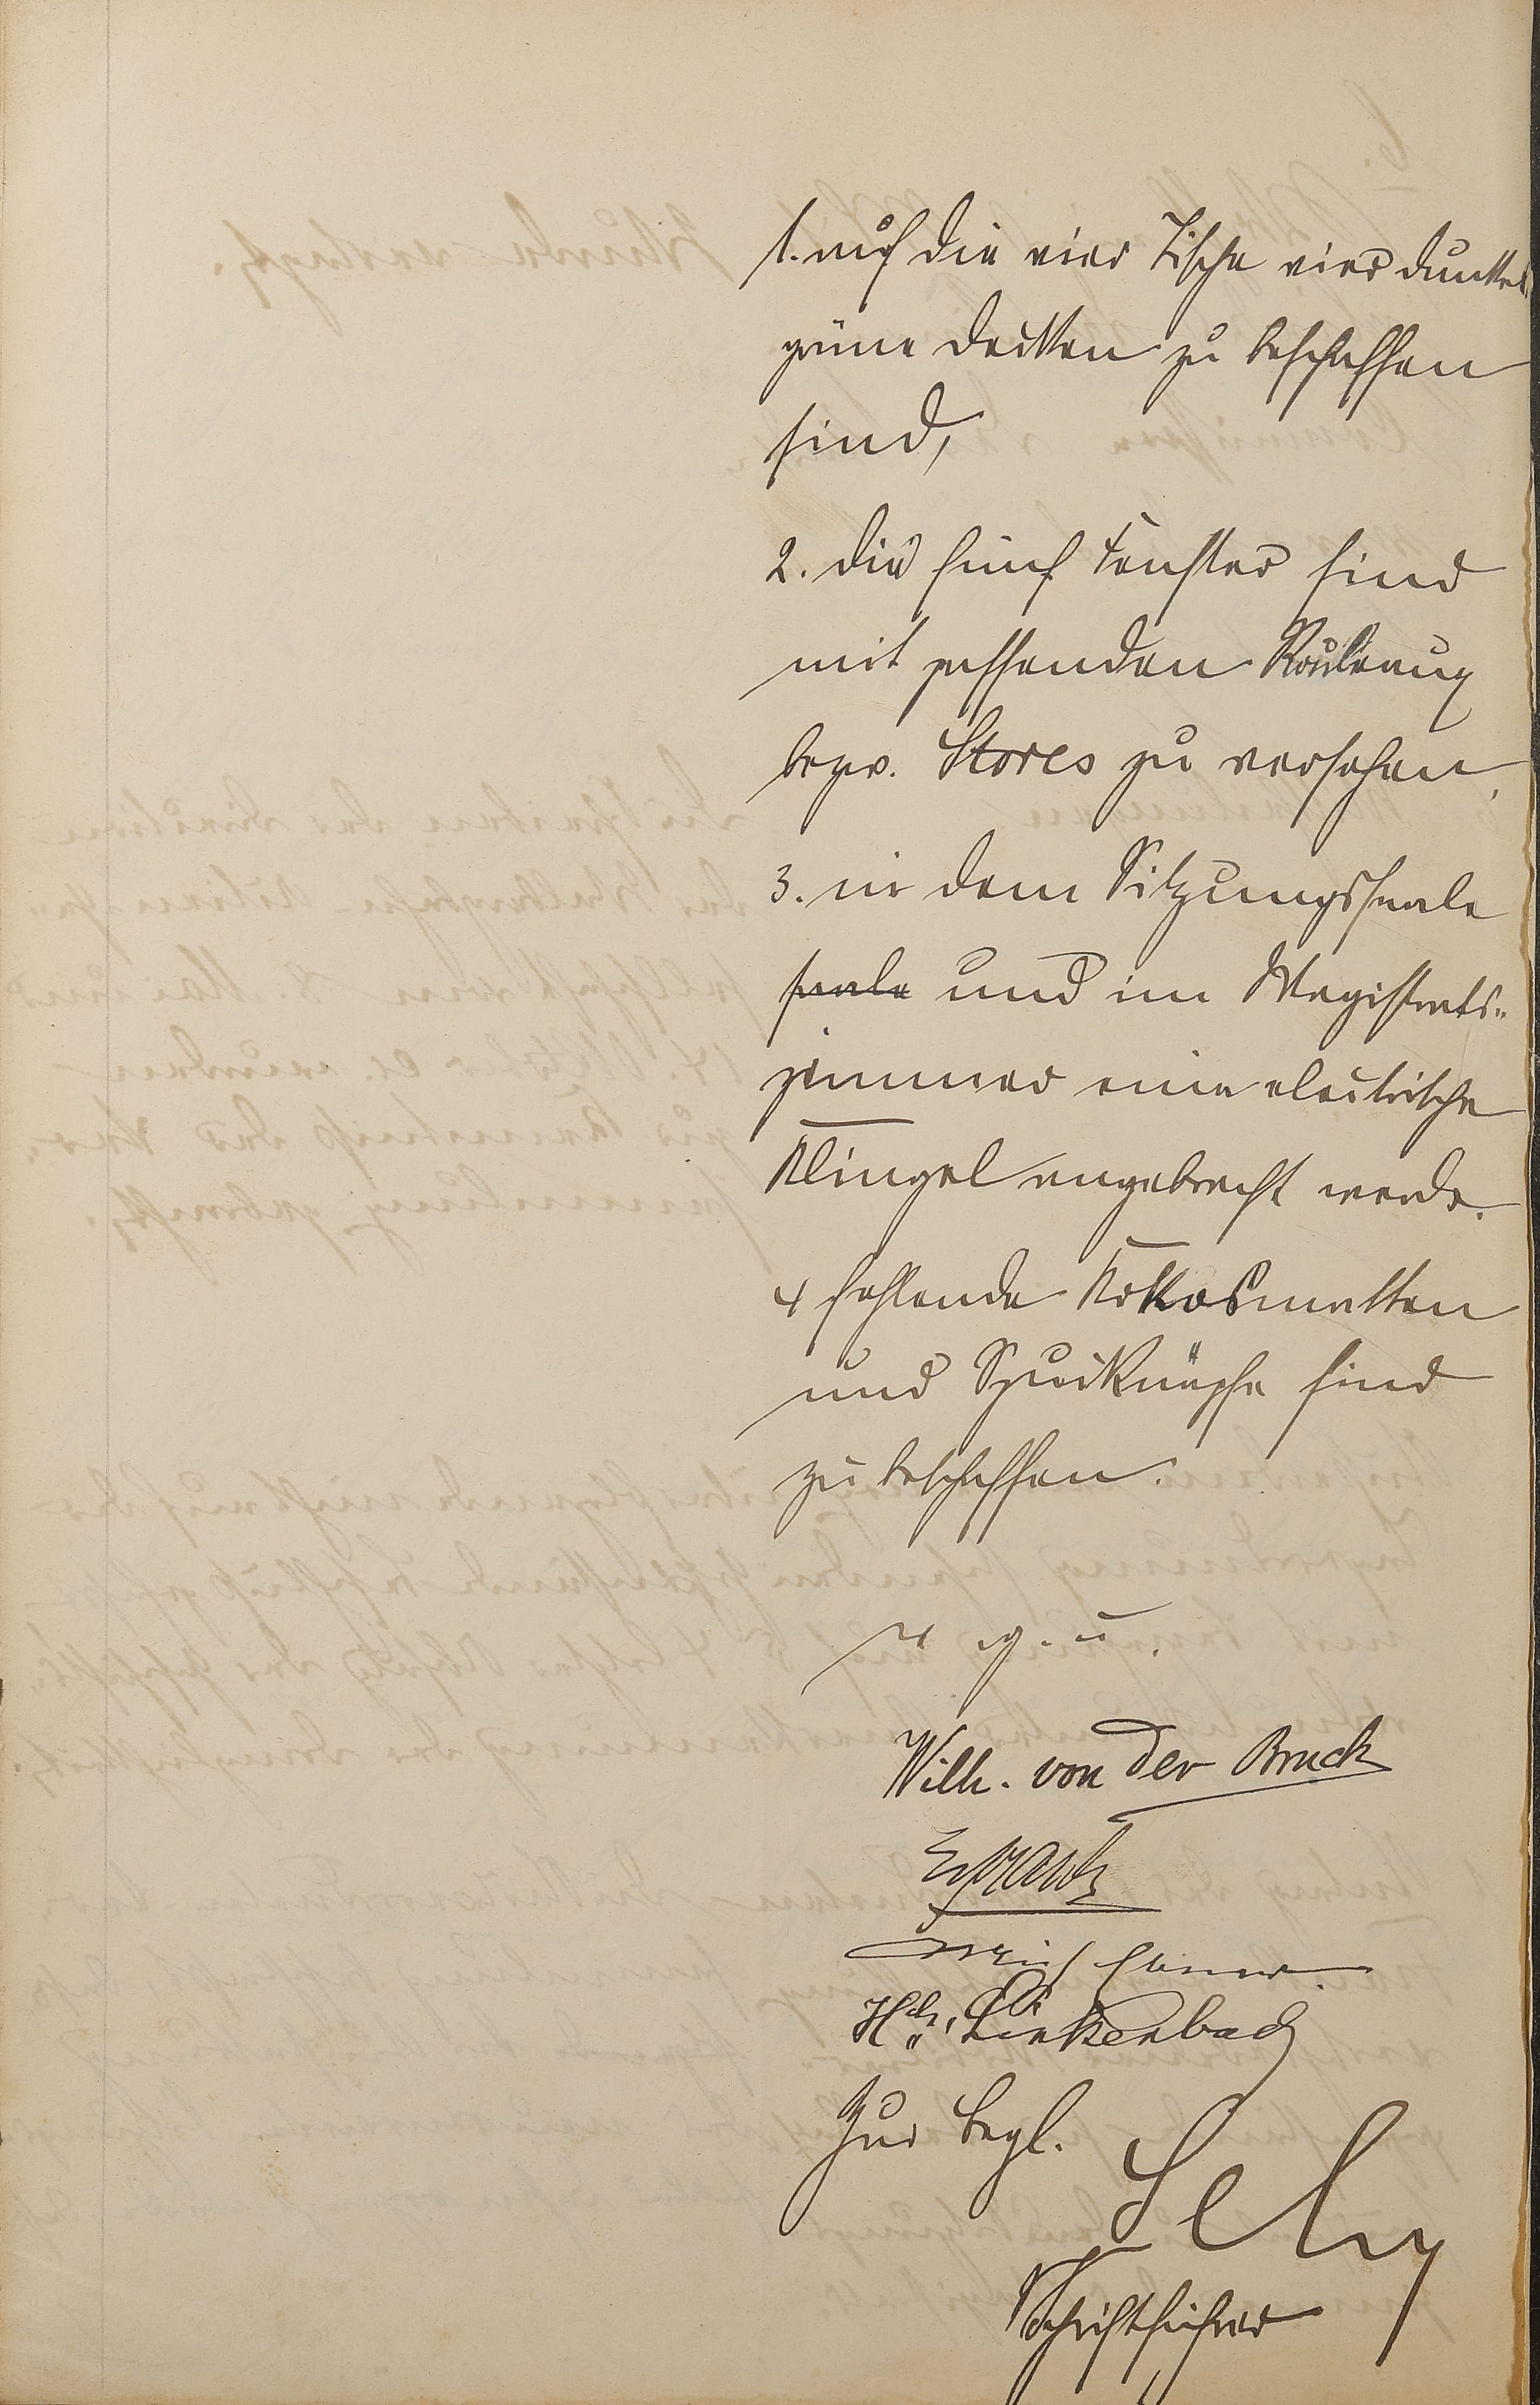 1. auf die vier Tische vier dunkel
grüne Decken zu beschaffen
sind,
2. die fünf Fenster sind
mit passenden Rouleaux
bezw. Stores zu versehen,
3. in dem Sitzungssaale
saale und im Magistrats-
zimmer eine electrische
Klingel angebracht werde.
4 fehlende Kokosmatten
und Spucknäpfe sind
zu beschaffen.
v. g. u.
Wilh. von der Bruck
Hch. Linkenbach
Zur Begl.
Schriftführer